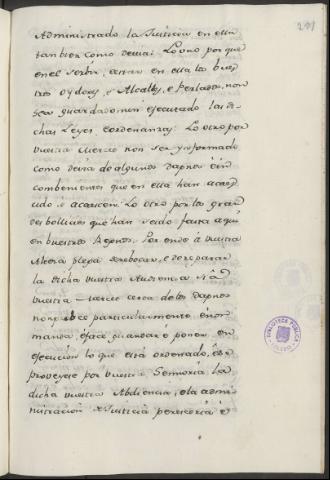 291
Administrado la Justicia en ella
tambien como devia: Lo uno por que
en el servir, estar en ella los bues
tros oydores, e Alcaldes, e Perlados, non
sea guardado nin ejecutado las di
chas Leyes e ordenanzas: Lo otro por
vuestra merced non ser ynformado
como devia de algunos dapnos é in
combenientes que en ella han acaes
cido, e acaescen: Lo otro por los gran
des bollicios que han seido fasta aqui
en buestros Regnos; Por ende á vuestra
Alteza plega de rebocar, e de reparar
la dicha vuestra Audiencia si á
vuestra merced cerca de los dapnos
particularmente, é nos
manda é face guardar é poner en
ejecucion lo que está ordenado,
proveyese por vuestra Sennoria la
dicha vuestra Abdiencia, e la admi
nistracion de Justicia peresceria é
BIBLIOTECA PUBLICA
TOLEDO